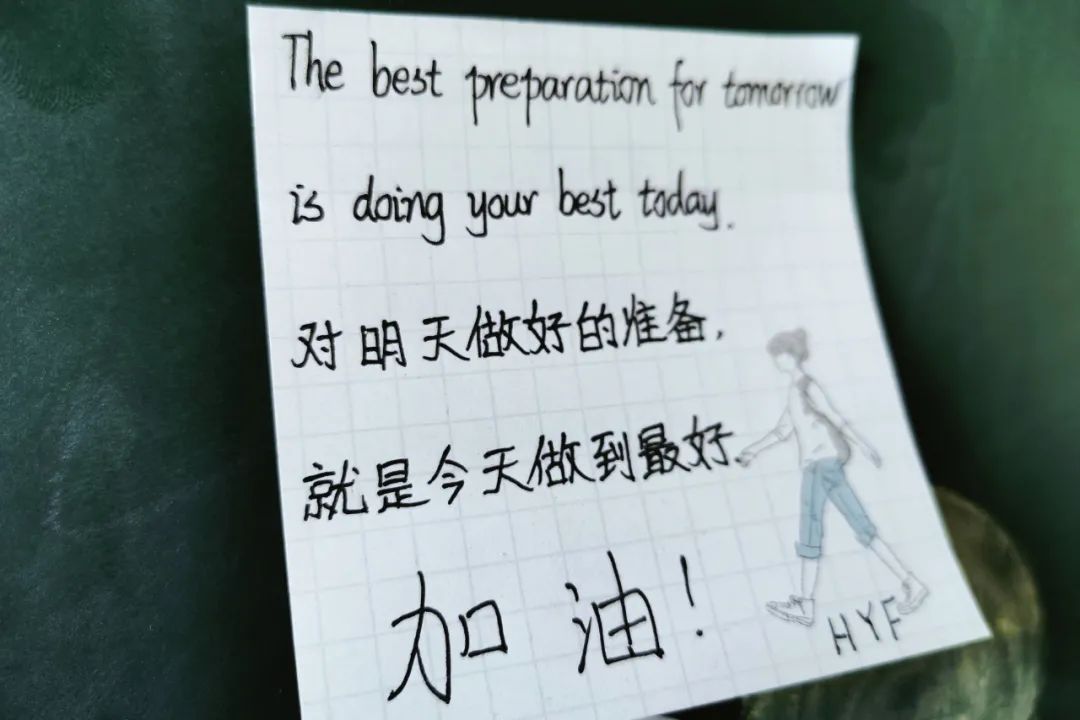 The best preparation for tomorrow
is doing your best today.
对明天做好的准备,
就是今天做到最好.
加油!
HYF